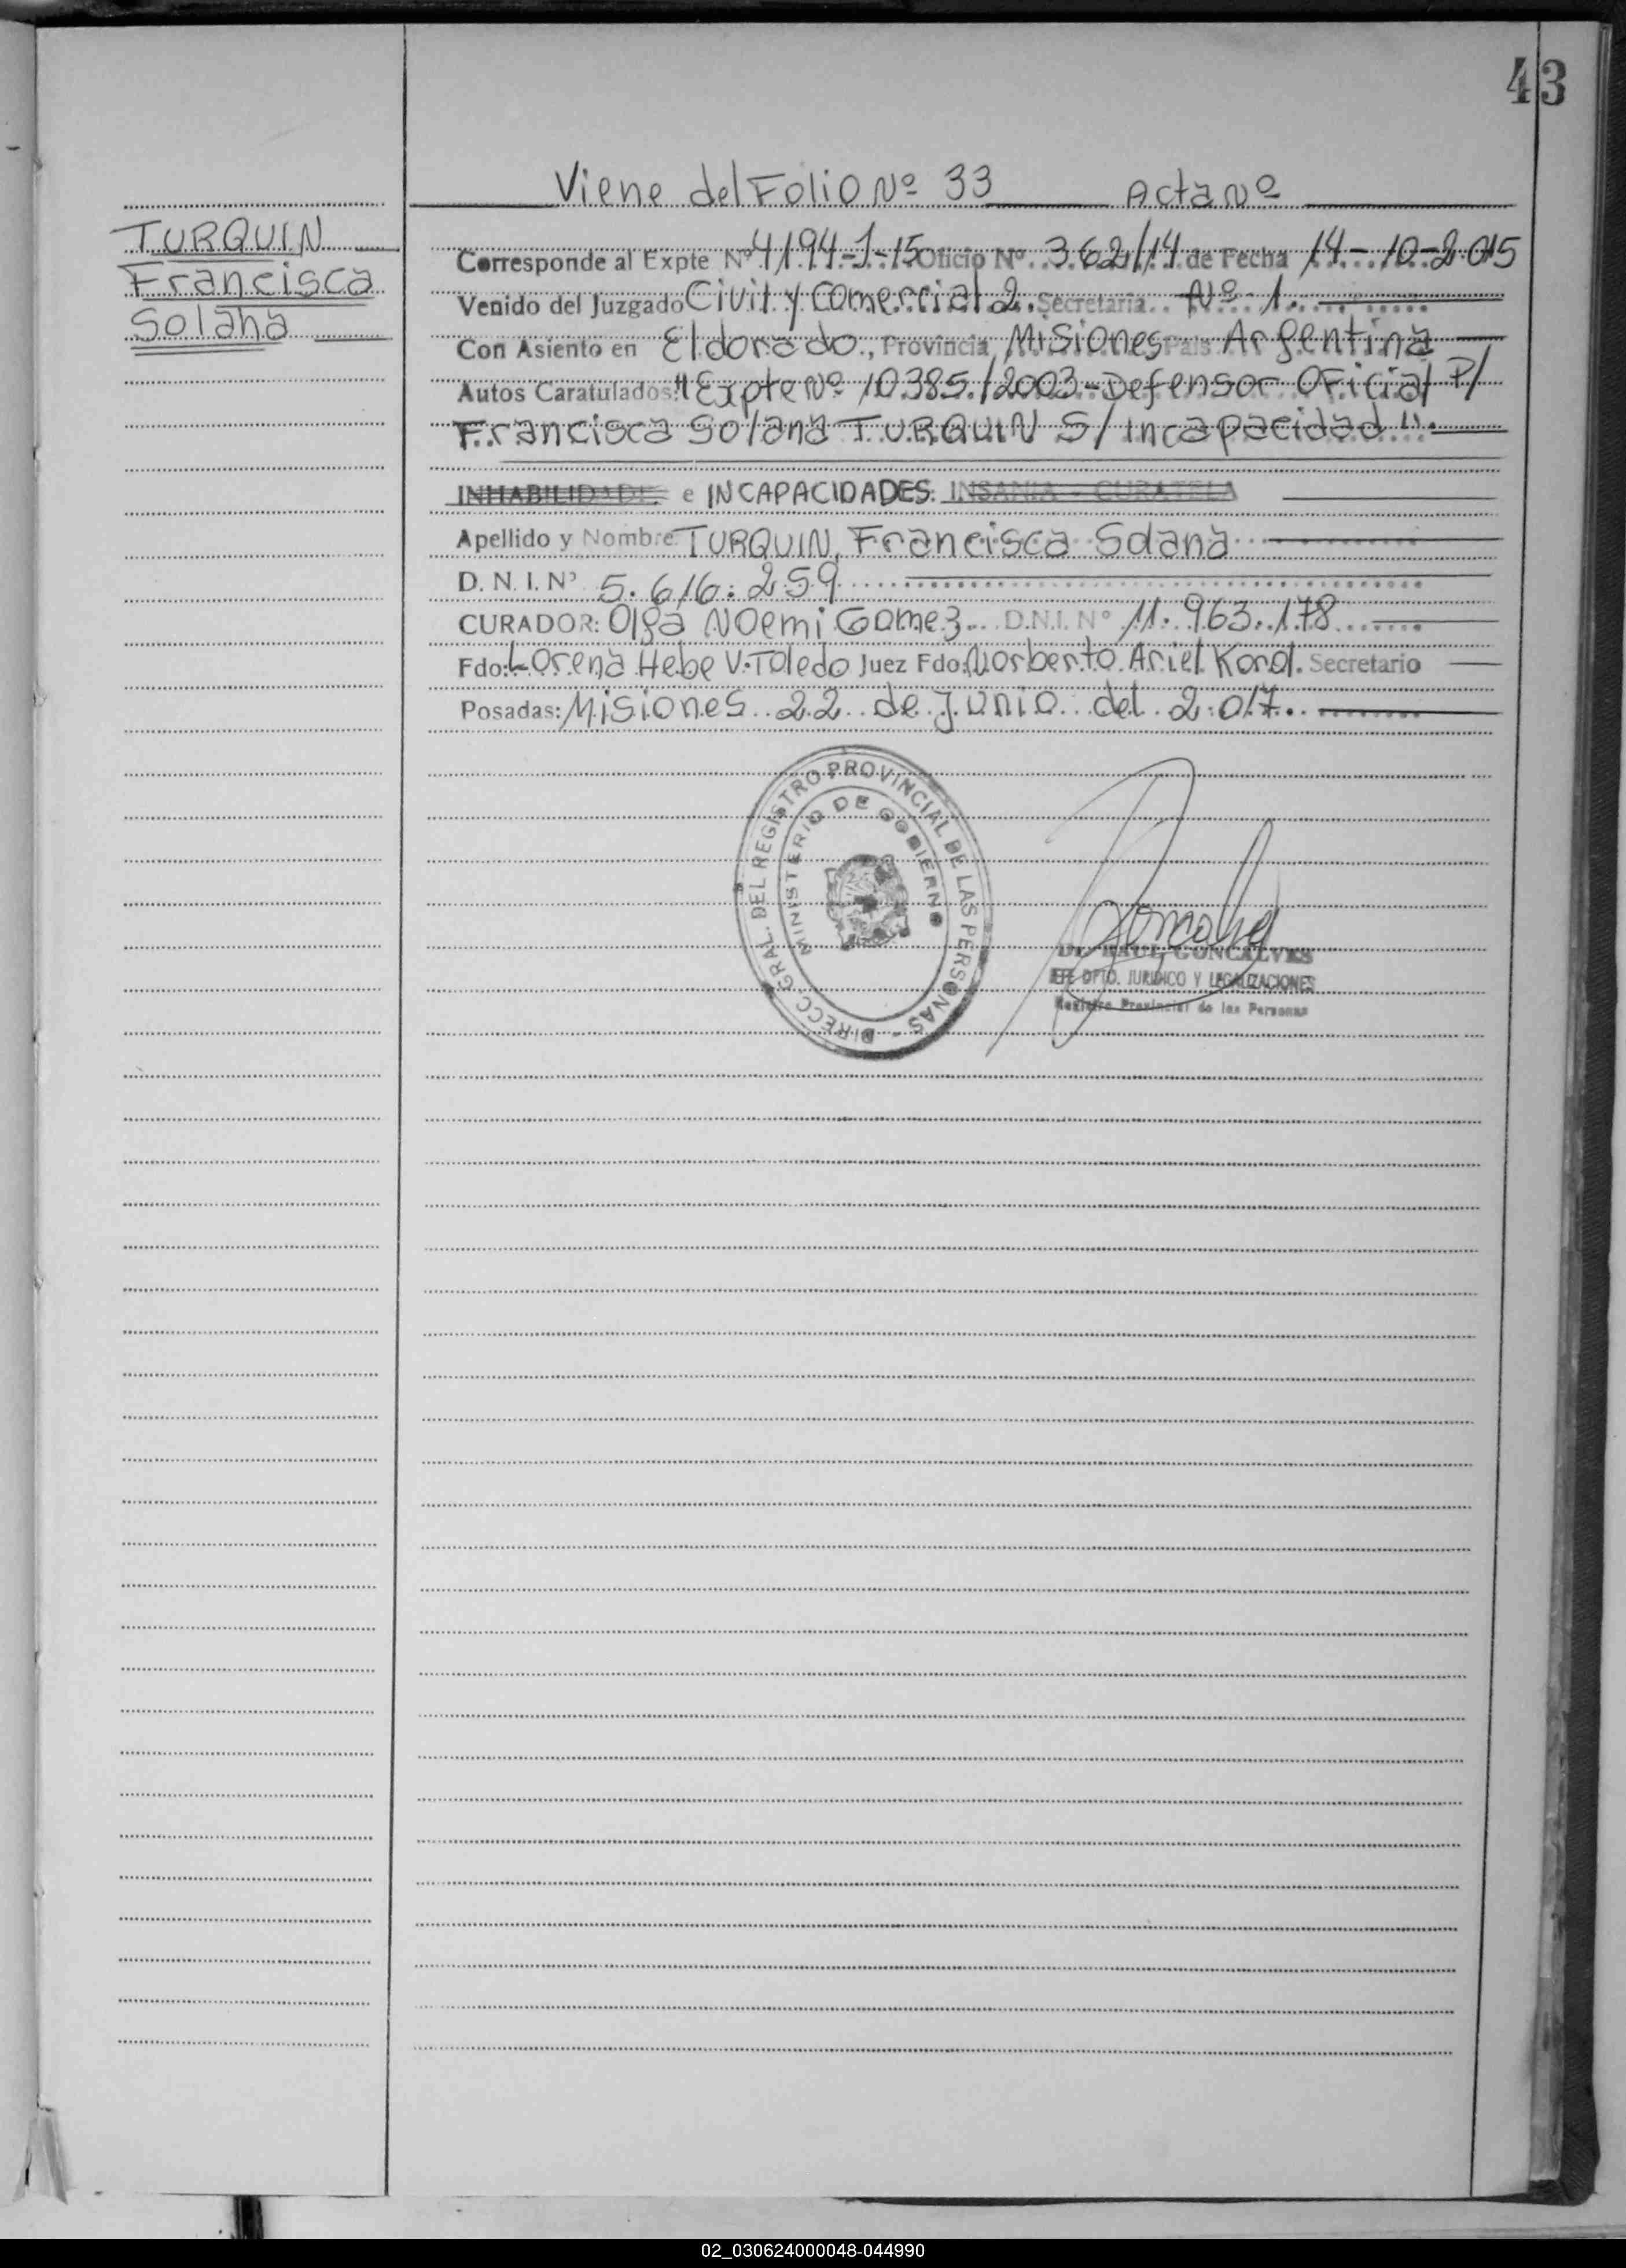 43
Viene del Folio Nº 33 Acta Nº
TURQUIN
Francisca
Solana
Corresponde al Expte Nº 4194-J-15 Oficio Nº 362/14 de Fecha 14-10-2015
Venido del Juzgado Civil y Comercial 2. Secretaria Nº 1.
Con Asiento en Eldorado, Provincia Misiones Pais Argentina
Autos Caratulados: "Expte Nº 10385/2003-Defensor Oficial P/
Francisca Solana TURQUIN S/ Incapacidad".
INHABILIDADE. e INCAPACIDADES: INSANIA - CURATELA
Apellido y Nombre: TURQUIN, Francisca Solana
D. N. I. Nº 5.616.259
CURADOR: Olga Noemi Gomez D.N.I. Nº 11.963.178
Fdo: Lorena Hebe V. Toledo Juez Fdo: Norberto Ariel Korol. Secretario
Posadas: Misiones 22 de Junio del 2.017.
DIRECC. GRAL. DEL REGISTRO PROVINCIAL DE LAS PERSONAS -
MINISTERIO DE GOBIERNO
Dr. RAUL GONCALVES
JEFE DPTO. JURIDICO Y LEGALIZACIONES
Registro Provincial de las Personas
02_030624000048-044990